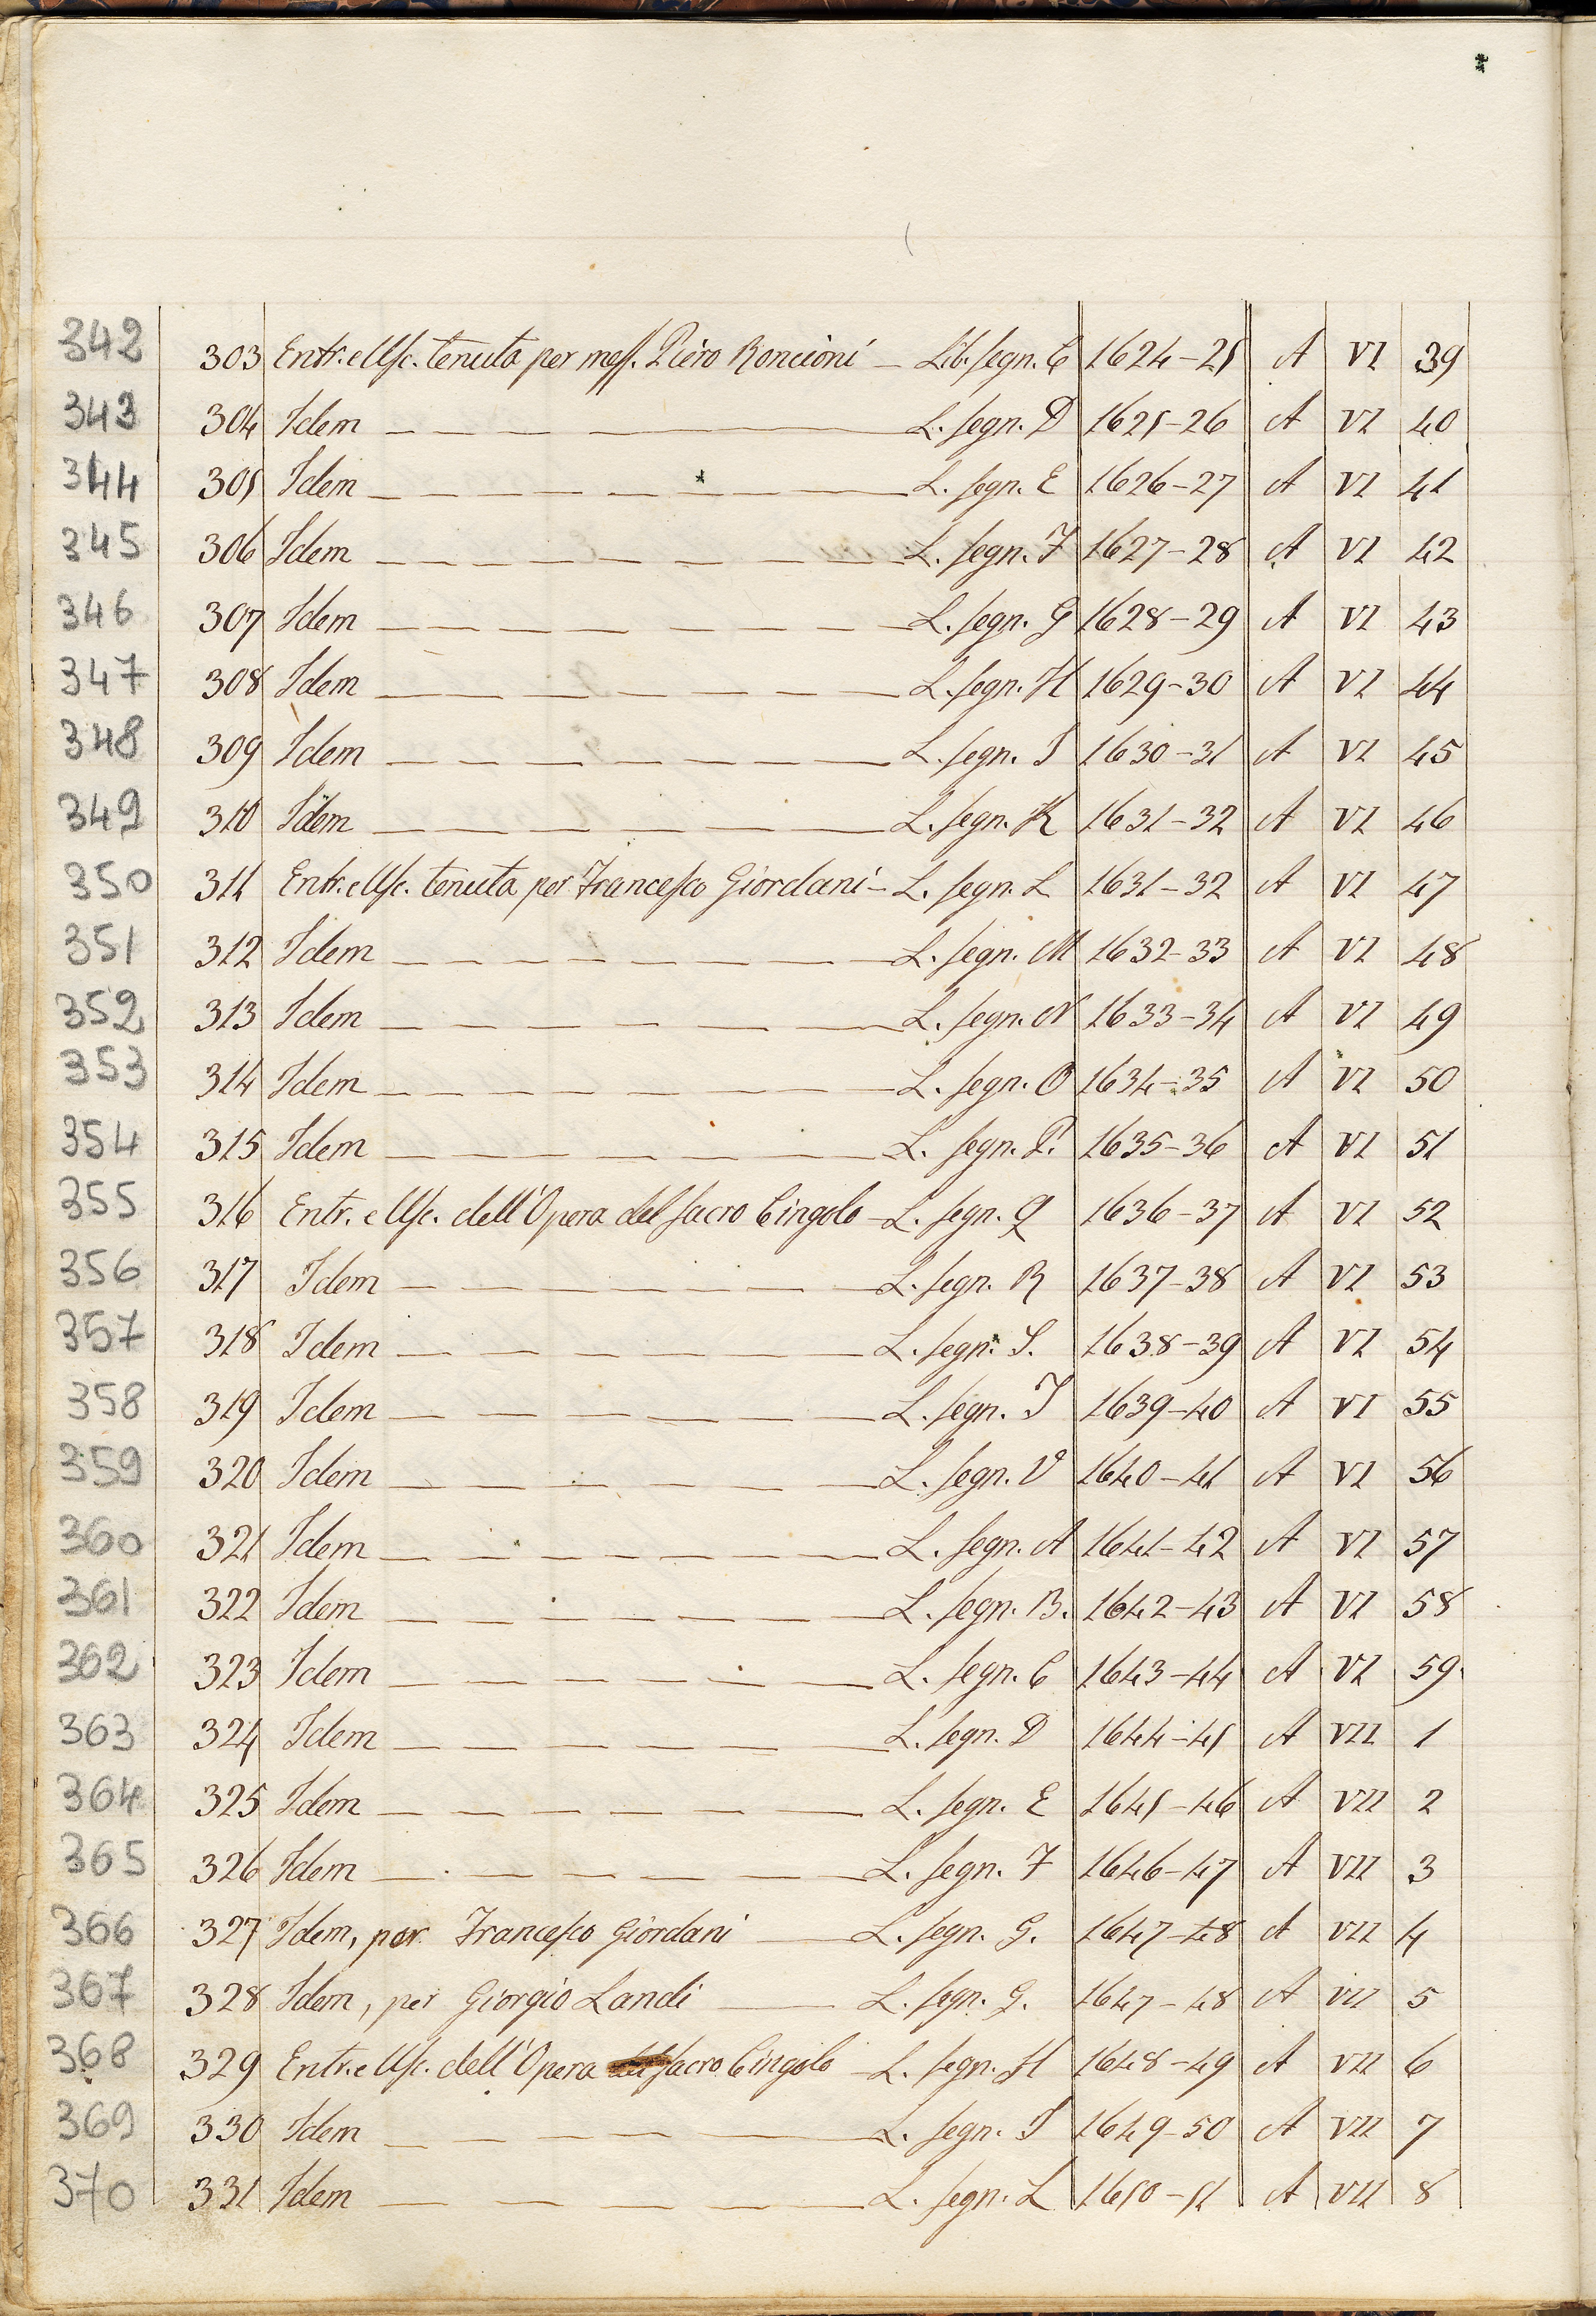 342 303 Entr. e Usc. tenuta per mess. Piero Roncioni — Lib. segn. C 1624-25 A VI 39
343 304 Idem — L. segn. D 1625-26 A VI 40
344 305 Idem — L. segn. E 1626-27 A VI 41
345 306 Idem — L. segn. F 1627-28 A VI 42
346 307 Idem — L. segn. G 1628-29 A VI 43
347 308 Idem — L. segn. H 1629-30 A VI 44
348 309 Idem — L. segn. I 1630-31 A VI 45
349 310 Idem — L. segn. K 1631-32 A VI 46
350 311 Entr. e Usc. tenuta per Francesco Giordani — L. segn. L 1631-32 A VI 47
351 312 Idem — L. segn. M 1632-33 A VI 48
352 313 Idem — L. segn. N 1633-34 A VI 49
353 314 Idem — L. segn. O 1634-35 A VI 50
354 315 Idem — L. segn. P. 1635-36 A VI 51
355 316 Entr. e Usc. dell'Opera del sacro Cingolo — L. segn. Q 1636-37 A VI 52
356 317 Idem — L. segn. R 1637-38 A VI 53
357 318 Idem — L. segn. S. 1638-39 A VI 54
358 319 Idem — L. segn. T 1639-40 A VI 55
359 320 Idem — L. segn. V 1640-41 A VI 56
360 321 Idem — L. segn. A 1641-42 A VI 57
361 322 Idem — L. segn. B. 1642-43 A VI 58
362 323 Idem — L. segn. C 1643-44 A VI 59
363 324 Idem — L. segn. D 1644-45 A VII 1
364 325 Idem — L. segn. E 1645-46 A VII 2
365 326 Idem — L. segn. F 1646-47 A VII 3
366 327 Idem, per Francesco Giordani — L. segn. G. 1647-48 A VII 4
367 328 Idem, per Giorgio Landi — L. segn. G. 1647-48 A VII 5
368 329 Entr. e Usc. dell'Opera del sacro Cingolo — L. segn. H 1648-49 A VII 6
369 330 Idem — L. segn. I 1649-50 A VII 7
370 331 Idem — L. segn. L 1650-51 A VII 8